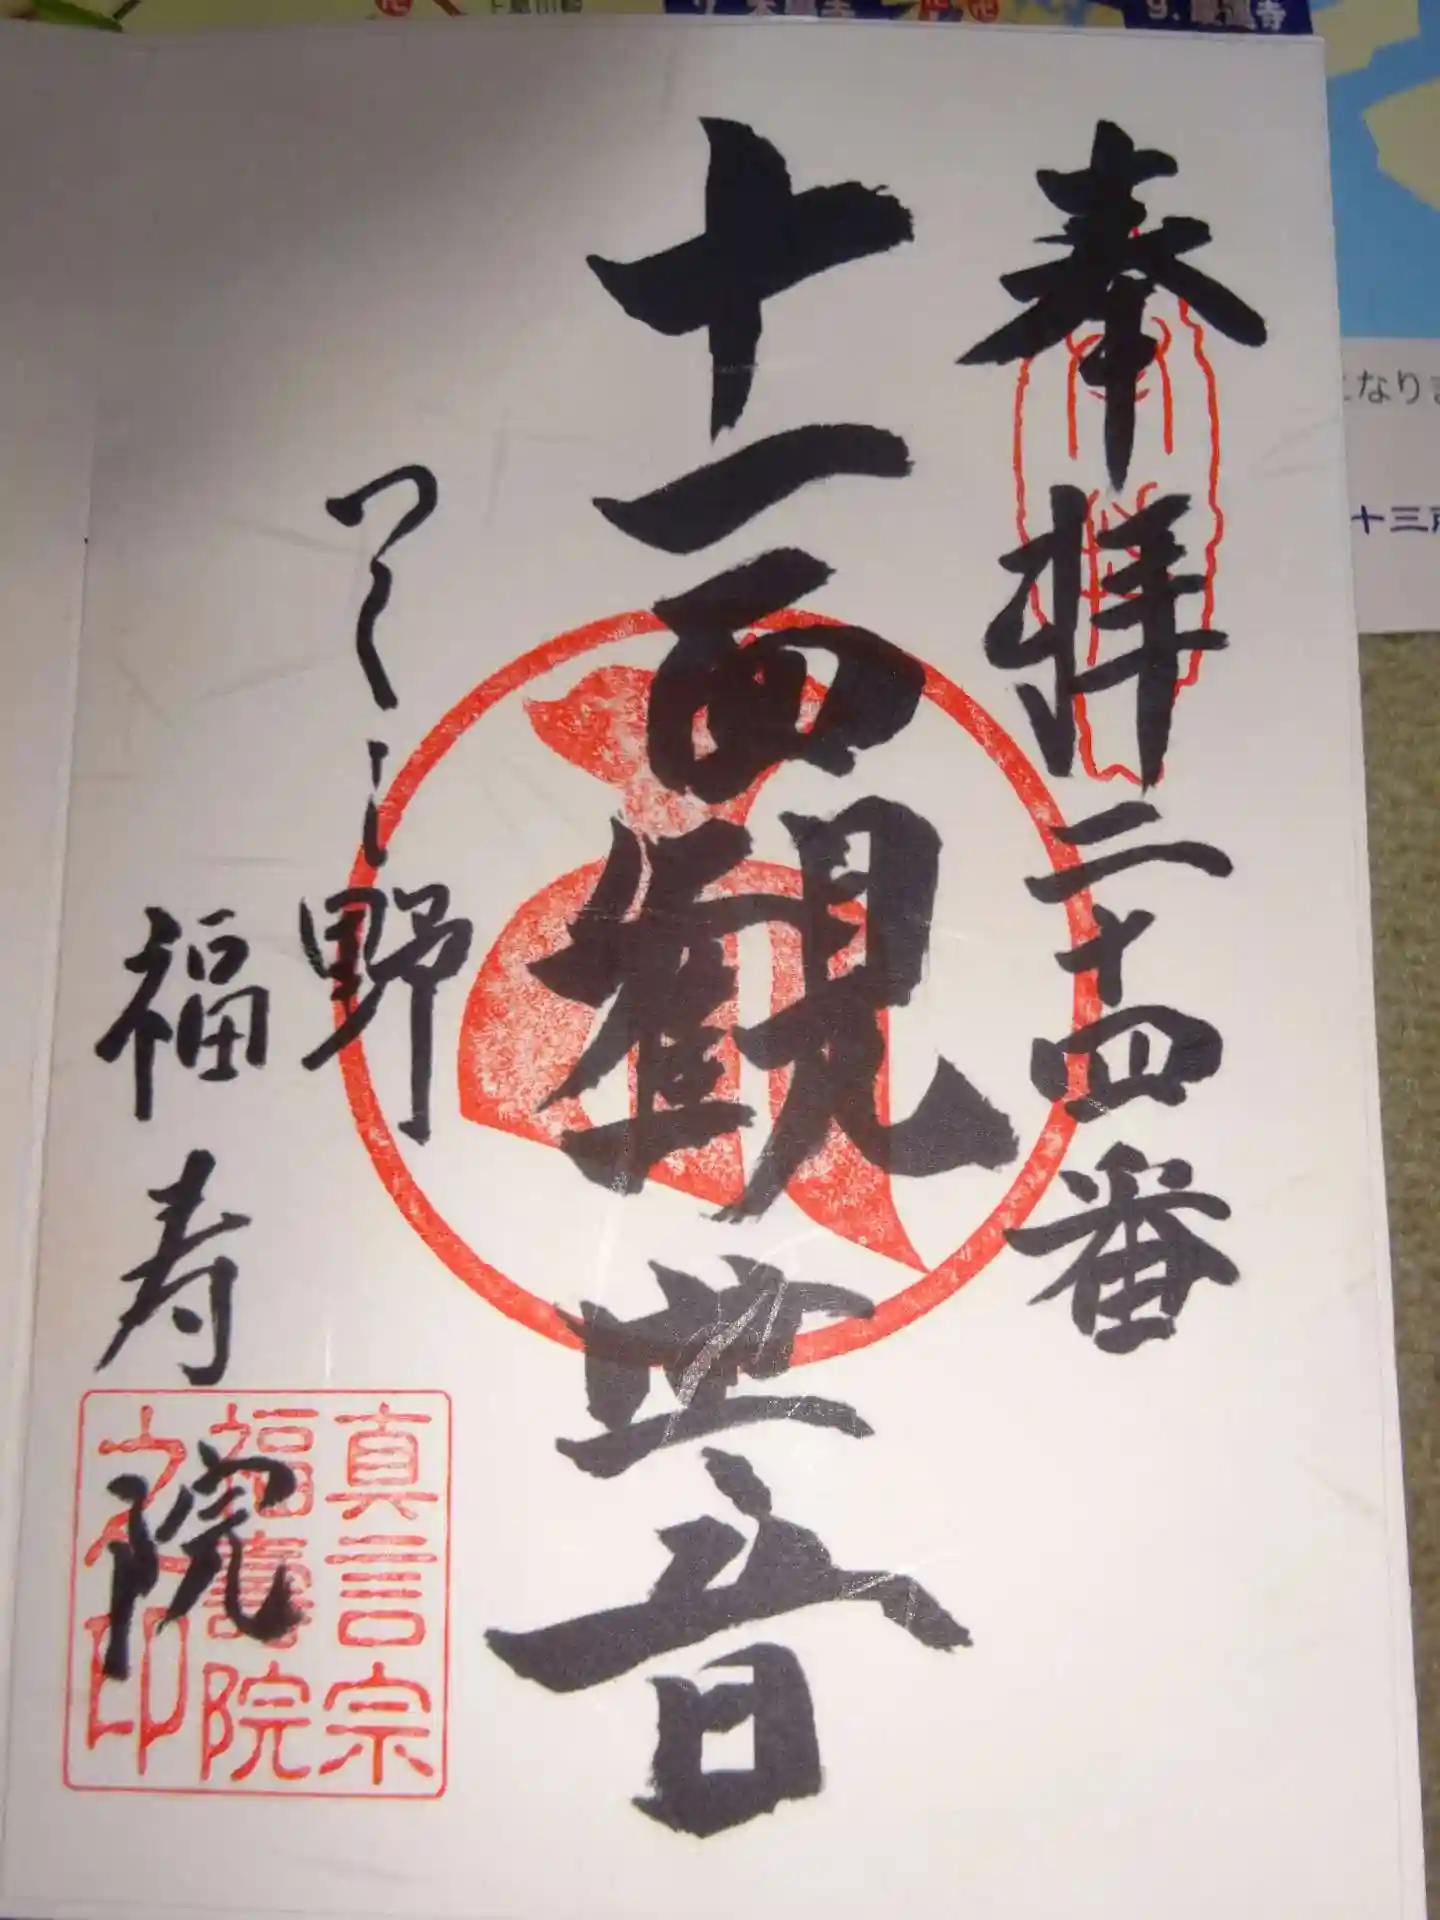 奉拝 二十四番
十一面観世音
つくし野
福寿院
真言宗
福壽院
之印
なりま
十三